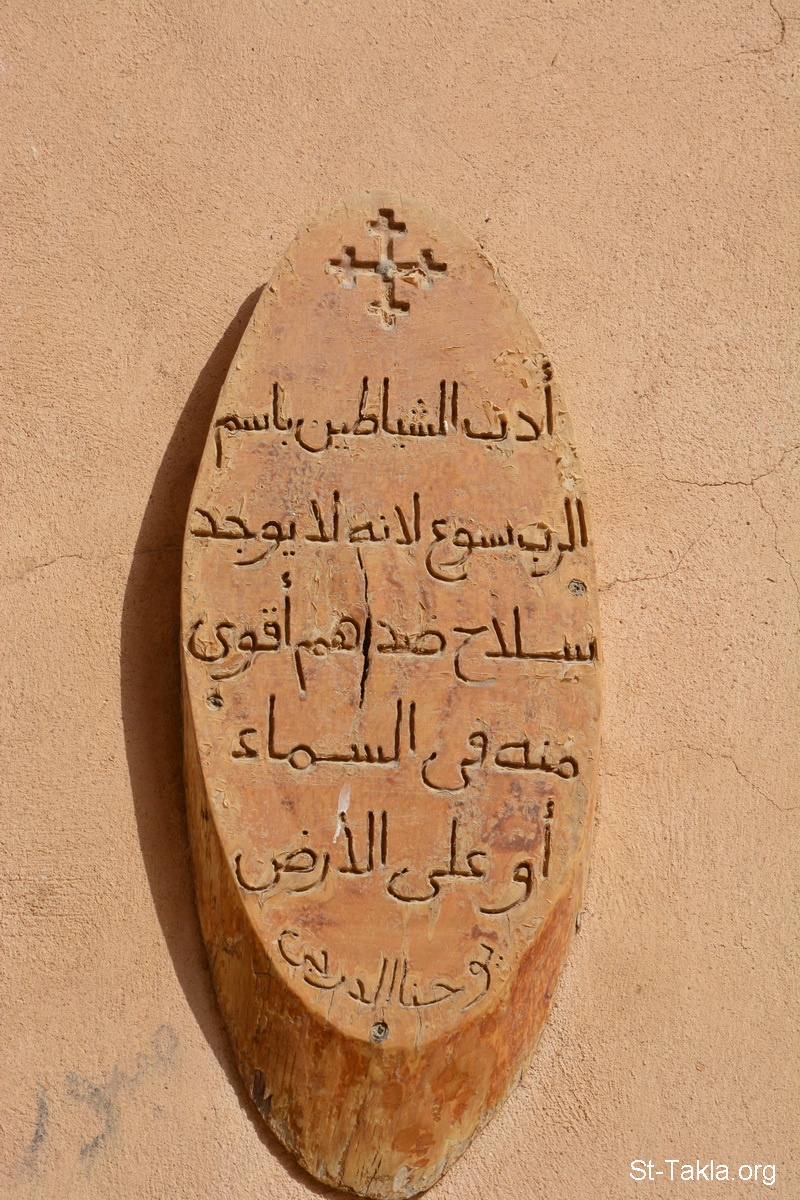 أدب الشياطين باسم
الرب سوع لانه لا يوجد
سلاح ضداهم أقوى
منه فى السماء
أو على الأرض
يوحنا الدرجى
St-Takla.org